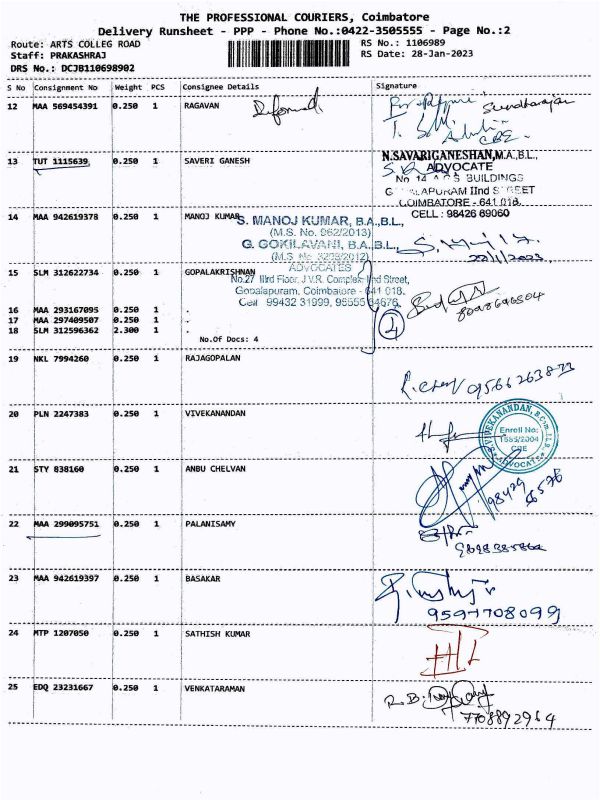 THE PROFESSIONAL COURIERS, Coimbatore
Delivery Runsheet - PPP - Phone No.:0422-3505555 - Page No.:2
Route: ARTS COLLEG ROAD RS No.: 1106989
Staff: PRAKASHRAJ RS Date: 28-Jan-2023
DRS No.: DCJB110698902
S No Consignment No Weight PCS Consignee Details Signature
12 MAA 569454391 0.250 1 RAGAVAN
13 TUT 1115639 0.250 1 SAVERI GANESH
N.SAVARIGANESHAN,M.A.,B.L.,
ADVOCATE
No 14 BUILDINGS
IInd STREET
COIMBATORE - 641 018.
CELL : 98426 69060
14 MAA 942619378 0.250 1 MANOJ KUMAR
S. MANOJ KUMAR, B.A.,B.L.,
(M.S. No. 962/2013)
G. GOKILAVANI, B.A.,B.L.,
ADVOCATES
No.27 IIIrd Floor, J.V.R. Complex, IInd Street,
Gopalapuram, Coimbatore - 641 018.
Cell 99432 31999,
15 SLM 312622734 0.250 1 GOPALAKRISHNAN
16 MAA 293167095 0.250 1 .
17 MAA 297409507 0.250 1 .
18 SLM 312596362 2.300 1 .
No.Of Docs: 4
4
19 NKL 7994260 0.250 1 RAJAGOPALAN
9566263833
20 PLN 2247383 0.250 1 VIVEKANANDAN
VIVEKANANDAN, B.Com.,LL.B
Enroll No:
1555/2004
CBE
ADVOCATE
21 STY 838160 0.250 1 ANBU CHELVAN
22 MAA 299095751 0.250 1 PALANISAMY
23 MAA 942619397 0.250 1 BASAKAR
9597708099
24 MTP 1207050 0.250 1 SATHISH KUMAR
25 EDQ 23231667 0.250 1 VENKATARAMAN
7708892964